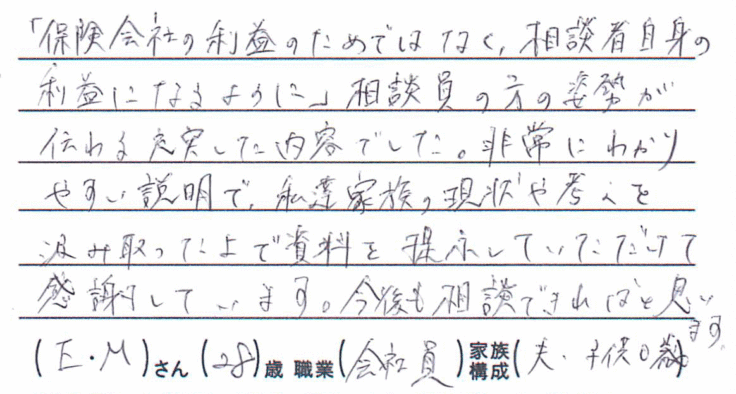 「保険会社の利益のためではなく、相談者自身の
利益になるように」相談員の方の姿勢が
伝わる充実した内容でした。非常にわかり
やすい説明で、私達家族の現状や考えを
汲み取った上で資料を提示していただけて
感謝しています。今後も相談できればと思い
ます。
(E・M)さん (28)歳 職業(会社員)家族構成(夫・子供0歳)